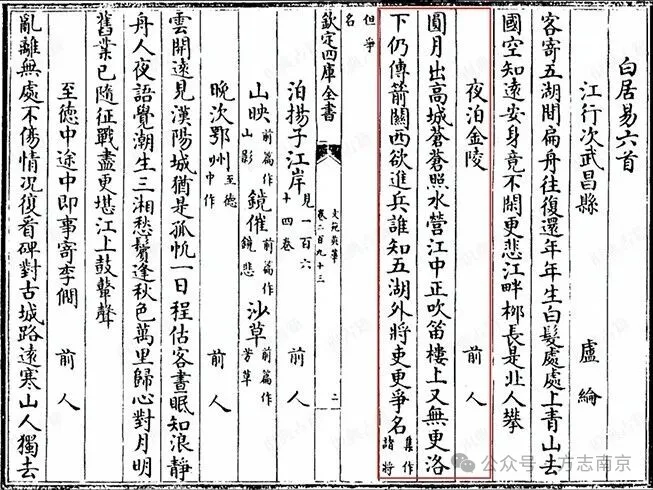 白居易六首
江行次武昌縣 盧綸
客寄五湖間扁舟往復還年年生白髮處處上青山去
國空知遠安身竟不閑更悲江畔栁長是北人攀
夜泊金陵 前人
圓月出高城蒼蒼照水營江中正吹笛樓上又無更洛
下仍傳箭關西欲進兵誰知五湖外將吏更爭名集作諸將
但爭名
欽定四庫全書 文苑英華 卷二百九十三 二
泊揚子江岸見一百六十四卷 前人
山映前篇作山影 鏡催前篇作鏡悲 沙草前篇作芳草
晚次鄂州至德中作 前人
雲開遠見漢陽城猶是孤帆一日程估客晝眠知浪靜
舟人夜語覺潮生三湘愁鬢逢秋色萬里歸心對月明
舊業已隨征戰盡更堪江上鼓鼙聲
至德中途中即事寄李僩 前人
亂離無處不傷情況復看碑對古城路遠寒山人獨去
公众号 · 方志南京